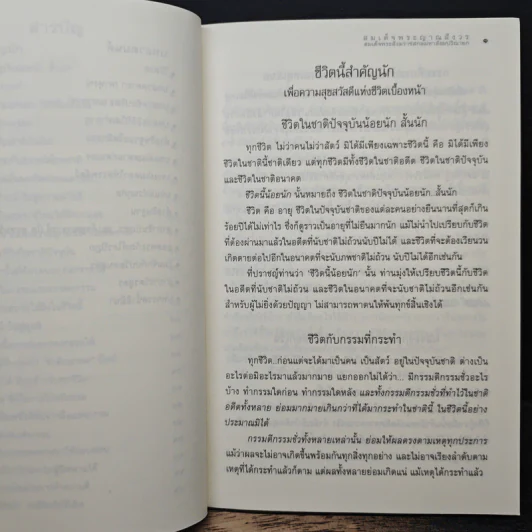 สมเด็จพระญาณสังวร
ชีวิตนี้สำคัญนัก
เพื่อความสุขสวัสดีแห่งชีวิตเบื้องหน้า
ชีวิตในชาติปัจจุบันน้อยนัก สั้นนัก
ทุกชีวิต ไม่ว่าคนไม่ว่าสัตว์ มิได้มีเพียงเฉพาะชีวิตนี้ คือ มิได้มีเพียง
ชีวิตในชาตินี้ชาติเดียว แต่ทุกชีวิตมีทั้งชีวิตในชาติอดีต ชีวิตในชาติปัจจุบัน
และชีวิตในชาติอนาคต
ชีวิตนี้น้อยนัก นั้นหมายถึง ชีวิตในชาติปัจจุบันน้อยนัก..สั้นนัก
ชีวิต คือ อายุ ชีวิตในปัจจุบันชาติของแต่ละคนอย่างยืนนานที่สุดก็เกิน
ร้อยปีได้ไม่เท่าไร ซึ่งก็ดูราวเป็นอายุที่ไม่ยืนมากนัก แม้ไม่นำไปเปรียบกับชีวิต
ที่ต้องผ่านมาแล้วในอดีตที่นับชาติไม่ถ้วนนับปีไม่ได้ และชีวิตที่จะต้องเวียนวน
เกิดตายต่อไปอีกในอนาคตที่จะนับภพชาติไม่ถ้วน นับปีไม่ได้อีกเช่นกัน
ที่ปราชญ์ท่านว่า 'ชีวิตนี้น้อยนัก' นั้น ท่านมุ่งให้เปรียบชีวิตนี้กับชีวิต
ในอดีตที่นับชาติไม่ถ้วน และชีวิตในอนาคตที่จะนับชาติไม่ถ้วนอีกเช่นกัน
สำหรับผู้ไม่ยิ่งด้วยปัญญา ไม่สามารถพาตนให้พ้นทุกข์สิ้นเชิงได้
ชีวิตกับกรรมที่กระทำ
ทุกชีวิต..ก่อนแต่จะได้มาเป็นคน เป็นสัตว์ อยู่ในปัจจุบันชาติ ต่างเป็น
อะไรต่อมิอะไรมาแล้วมากมาย แยกออกไม่ได้ว่า... มีกรรมดีกรรมชั่วอะไร
บ้าง ทำกรรมใดก่อน ทำกรรมใดหลัง และทั้งกรรมดีกรรมชั่วที่ทำไว้ในชาติ
อดีตทั้งหลาย ย่อมมากมายเกินกว่าที่ได้มากระทำในชาตินี้ ในชีวิตนี้อย่าง
ประมาณมิได้
กรรมดีกรรมชั่วทั้งหลายเหล่านั้น ย่อมให้ผลตรงตามเหตุทุกประการ
แม้ว่าผลจะไม่อาจเกิดขึ้นพร้อมกันทุกสิ่งทุกอย่าง และไม่อาจเรียงลำดับตาม
เหตุที่ได้กระทำแล้วก็ตาม แต่ผลทั้งหลายย่อมเกิดแน่ แม้เหตุได้กระทำแล้ว